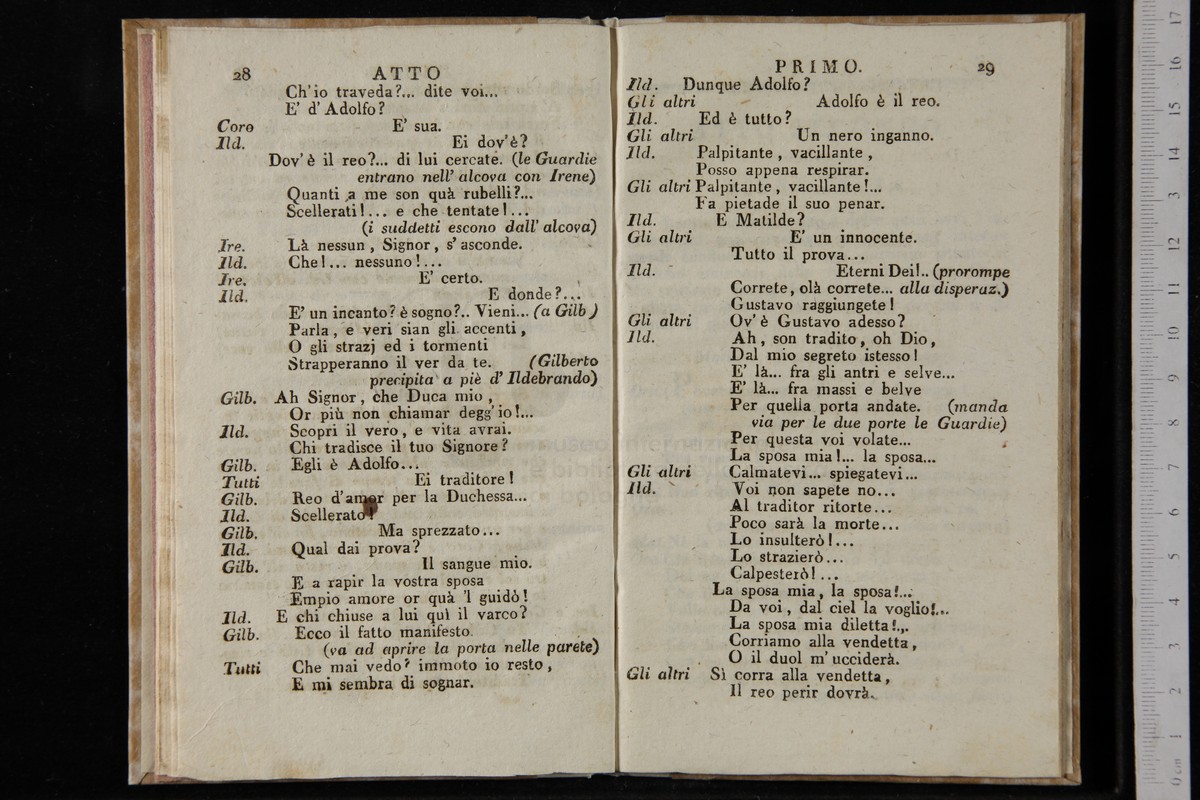 28 ATTO
Ch'io traveda?... dite voi...
E' d'Adolfo?
Coro E' sua.
Ild. Ei dov'è?
Dov'è il reo?... di lui cercate. (le Guardie
entrano nell' alcova con Irene)
Quanti a me son quà rubelli?...
Scellerati!... e che tentate!...
(i suddetti escono dall' alcova)
Ire. Là nessun, Signor, s'asconde.
Ild. Che!... nessuno!...
Ire. E' certo.
Ild. E donde?...
E' un incanto? è sogno?.. Vieni... (a Gilb)
Parla, e veri sian gli accenti,
O gli strazj ed i tormenti
Strapperanno il ver da te. (Gilberto
precipita a piè d' Ildebrando)
Gilb. Ah Signor, che Duca mio,
Or più non chiamar degg'io!...
Ild. Scopri il vero, e vita avrai.
Chi tradisce il tuo Signore?
Gilb. Egli è Adolfo...
Tutti Ei traditore!
Gilb. Reo d'amor per la Duchessa...
Ild. Scellerato!
Gilb. Ma sprezzato...
Ild. Qual dai prova?
Gilb. Il sangue mio.
E a rapir la vostra sposa
Empio amore or quà 'l guidò!
Ild. E chi chiuse a lui quì il varco?
Gilb. Ecco il fatto manifesto.
(va ad aprire la porta nelle parete)
Tutti Che mai vedo? immoto io resto,
E mi sembra di sognar.
PRIMO. 29
Ild. Dunque Adolfo?
Gli altri Adolfo è il reo.
Ild. Ed è tutto?
Gli altri Un nero inganno.
Ild. Palpitante, vacillante,
Posso appena respirar.
Gli altri Palpitante, vacillante!...
Fa pietade il suo penar.
Ild. E Matilde?
Gli altri E' un innocente.
Tutto il prova...
Ild. Eterni Dei!.. (prorompe
Correte, olà correte... alla disperaz.)
Gustavo raggiungete!
Gli altri Ov'è Gustavo adesso?
Ild. Ah, son tradito, oh Dio,
Dal mio segreto istesso!
E' là... fra gli antri e selve...
E' là... fra massi e belve
Per quella porta andate. (manda
via per le due porte le Guardie)
Per questa voi volate...
La sposa mia!... la sposa...
Gli altri Calmatevi... spiegatevi...
Ild. Voi non sapete no...
Al traditor ritorte...
Poco sarà la morte...
Lo insulterò!...
Lo strazierò...
Calpesterò!...
La sposa mia, la sposa!...
Da voi, dal ciel la voglio!...
La sposa mia diletta!...
Corriamo alla vendetta,
O il duol m'ucciderà.
Gli altri Sì corra alla vendetta,
Il reo perir dovrà.